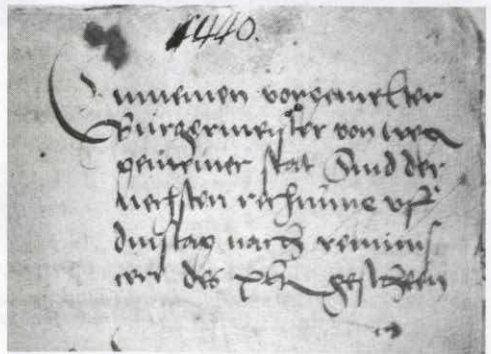 1440.
Innemen vorgemelter
Burgermeister von wegen
gemeiner stat Sind der
nechsten rechnung vff
dinstag nach reminis
cere des gescheen